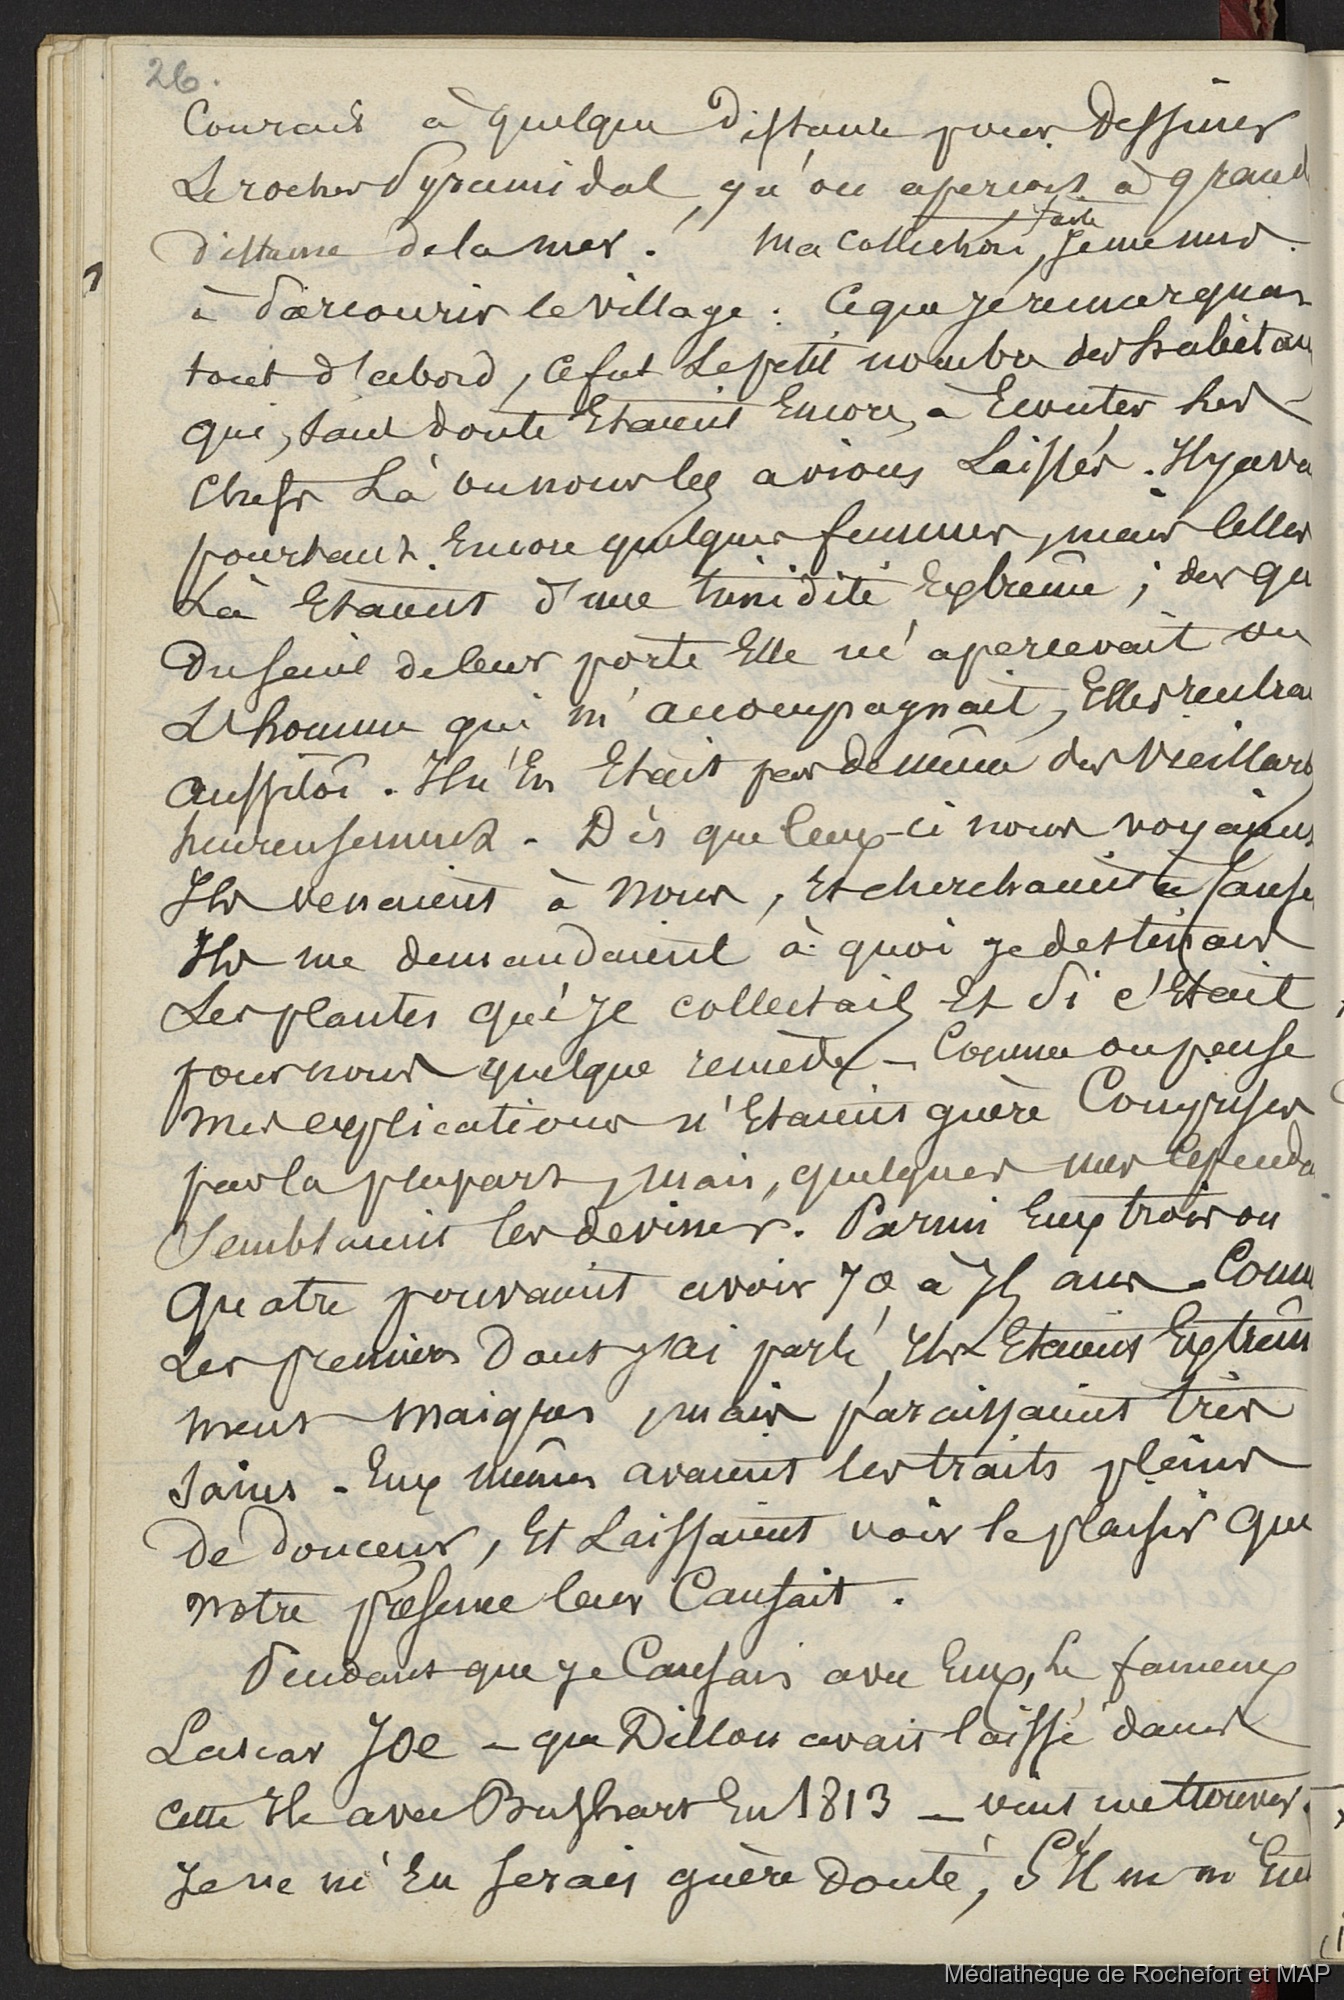 26.
Courais à quelque distance pour dessiner
Le rocher Pyramidal, qu'on aperçois à grand
distance de la mer. Ma collection faite, Je me mis
à Parcourir le village. Ce que je remarquai
tout d'abord, ce fut Le petit nombre des habitan
qui, sans doute Etaient Encore, à Ecouter les
Chefs Là ou nous les avions Laissés. Il y ava
pourtant Encore quelques femmes, mais celles
Là Etaient d'une timidité Extrême; des qu
du seuil de leur porte Elle m'apercevait ou
L'homme qui m'accompagnait, Elles rentra
aussitôt. Il n'En Etait pas de même des vieillards
heureusement - Dès que ceux-ci nous voyaient
Ils venaient à nous, Et cherchaient à Cause
Ils me demandaient à quoi je destinais
Les plantes que je collectais Et Si c'Etait
pour nous quelque remède - Comme on pense
Mes explications n'Etaient guère Comprises
par la plupart, mais, quelques uns cependa
Semblaient les deviner. Parmi Eux trois ou
Quatre pouvaient avoir 70 à 75 ans - Comm
Les premiers Dont j'ai parlé, Ils Etaient Extrême
ment maigres, mais Paraissaient très
Sains - Eux mêmes avaient les traits pleins
De douceur, Et Laissaient voir le plaisir que
notre présence leur Causait.
Pendant que je Causais avec Eux, Le fameux
Lascar JOE - que Dillon avait laissé dans
cette Ile avec Bushart En 1813 - vint me trouver.
Je ne m'En serais guère douté, S'Il ne m'Eu
Médiathèque de Rochefort et MAP